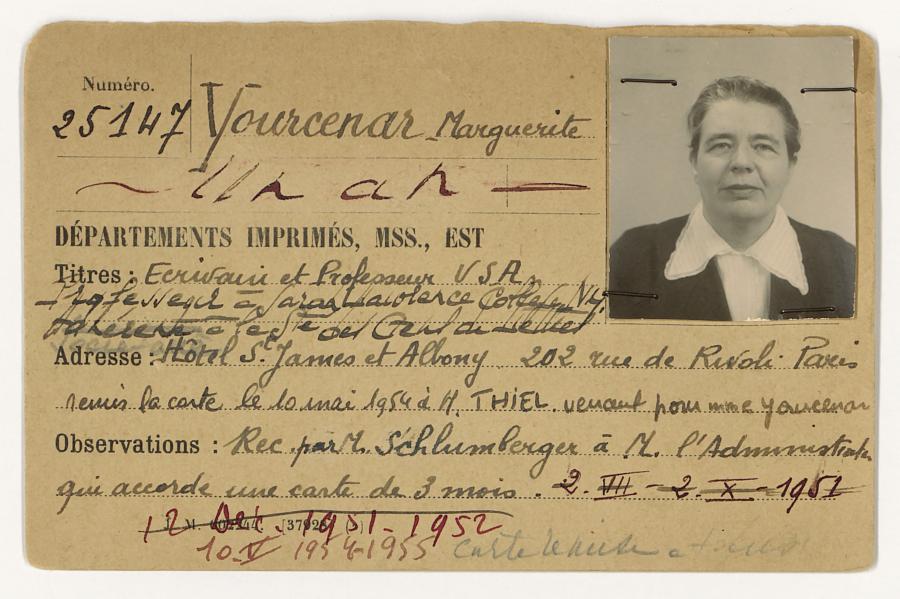 Numéro.
25147 Yourcenar Marguerite
Un an
DÉPARTEMENTS IMPRIMÉS, MSS., EST
Titres : Ecrivain et Professeur USA.
Professeur à Sarah Lawrence College N.Y.
adhérente à la Sté des Gens de Lettres
Adresse : Hôtel St. James et Albany 202 rue de Rivoli Paris
remis la carte le 10 mai 1954 à M. THIEL venant pour mme Yourcenar
Observations : Rec. par M. Schlumberger à M. l'Administrateur
qui accorde une carte de 3 mois. 2. VII - 2. X - 1951
12 Oct. 1951 - 1952
10.V 1954-1955 carte